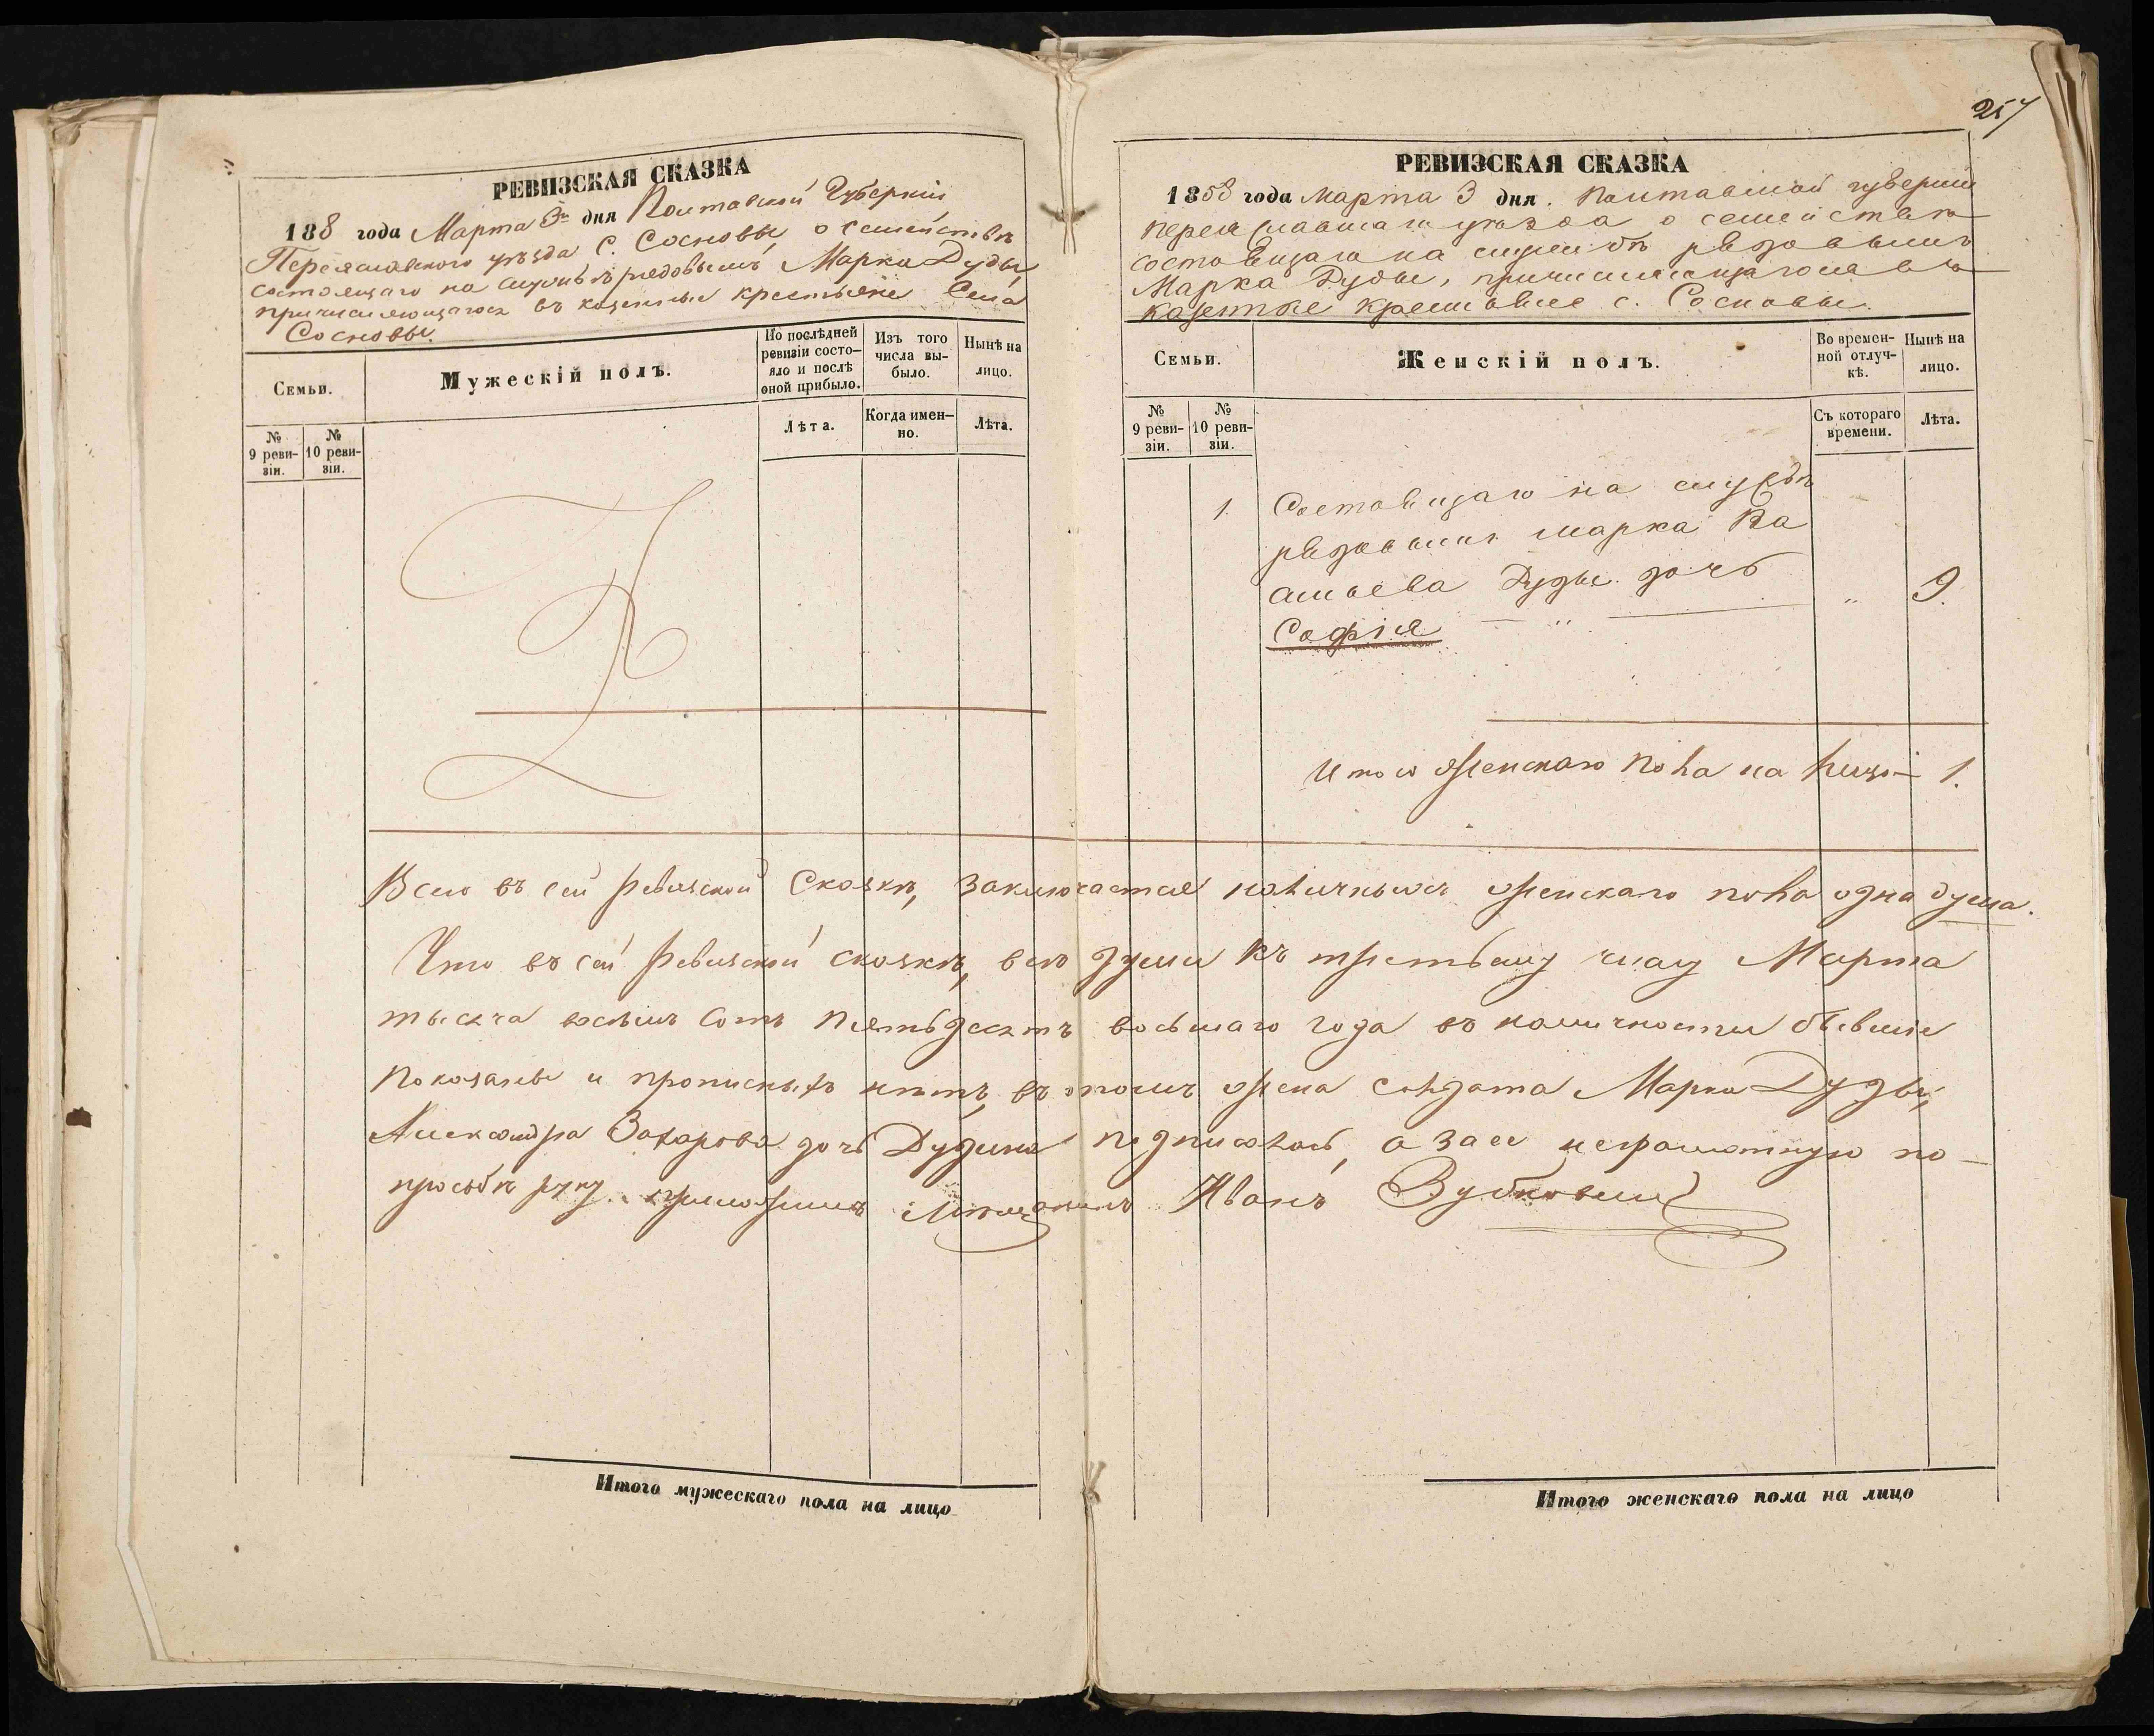 257
РЕВИЗСКАЯ СКАЗКА
188 года Марта 3го дня Полтавской Губерніи
Переяславского уѣзда С. Сосновы о семействѣ
состоящаго на службѣ рядовымъ Марка Дуды
причисляющагося въ казенные крестьяне Села
Сосновы.
Семьи.
Мужескій полъ.
По послѣдней
ревизіи состо-
яло и послѣ
оной прибыло.
Изъ того
числа вы-
было.
Нынѣ на
лицо.
№
9 реви-
зіи.
№
10 реви-
зіи.
Лѣта.
Когда имен-
но.
Лѣта.
РЕВИЗСКАЯ СКАЗКА
1858 года Марта 3 дня. Полтавской губерніи
Переяславшаго уезда о семействѣ
состоящаго на службѣ рядовымъ
Марка Дуды, причисляющагося въ
казенные крестьяне с. Сосновы.
Семьи.
Женскій полъ.
Во времен-
ной отлуч-
кѣ.
Нынѣ на
лицо.
№
9 реви-
зіи.
№
10 реви-
зіи.
Съ котораго
времени.
Лѣта.
1. Состоящаго на службѣ
рядовымъ Марка Ва
сильева Дуды дочь
Софія — „ — „ 9.
Итого женскаго пола на лицо — 1.
Всего въ сей Ревизской Сказкѣ, заключается наличныхъ женскаго пола одна душа.
Что въ сей Ревизской сказкѣ, все души къ третьему числу Марта
тысяча восемь сотъ пятьдесятъ восьмаго года въ наличности бывшіе
показаны и прописныхъ нетъ, въ томъ жена солдата Марка Дуды,
Александра Захарова дочь Дудина подписалась, а за ее неграмотную по-
просьбѣ руку приложилъ Мещанинъ Иванъ
Итого мужескаго пола на лицо
Итого женскаго пола на лицо